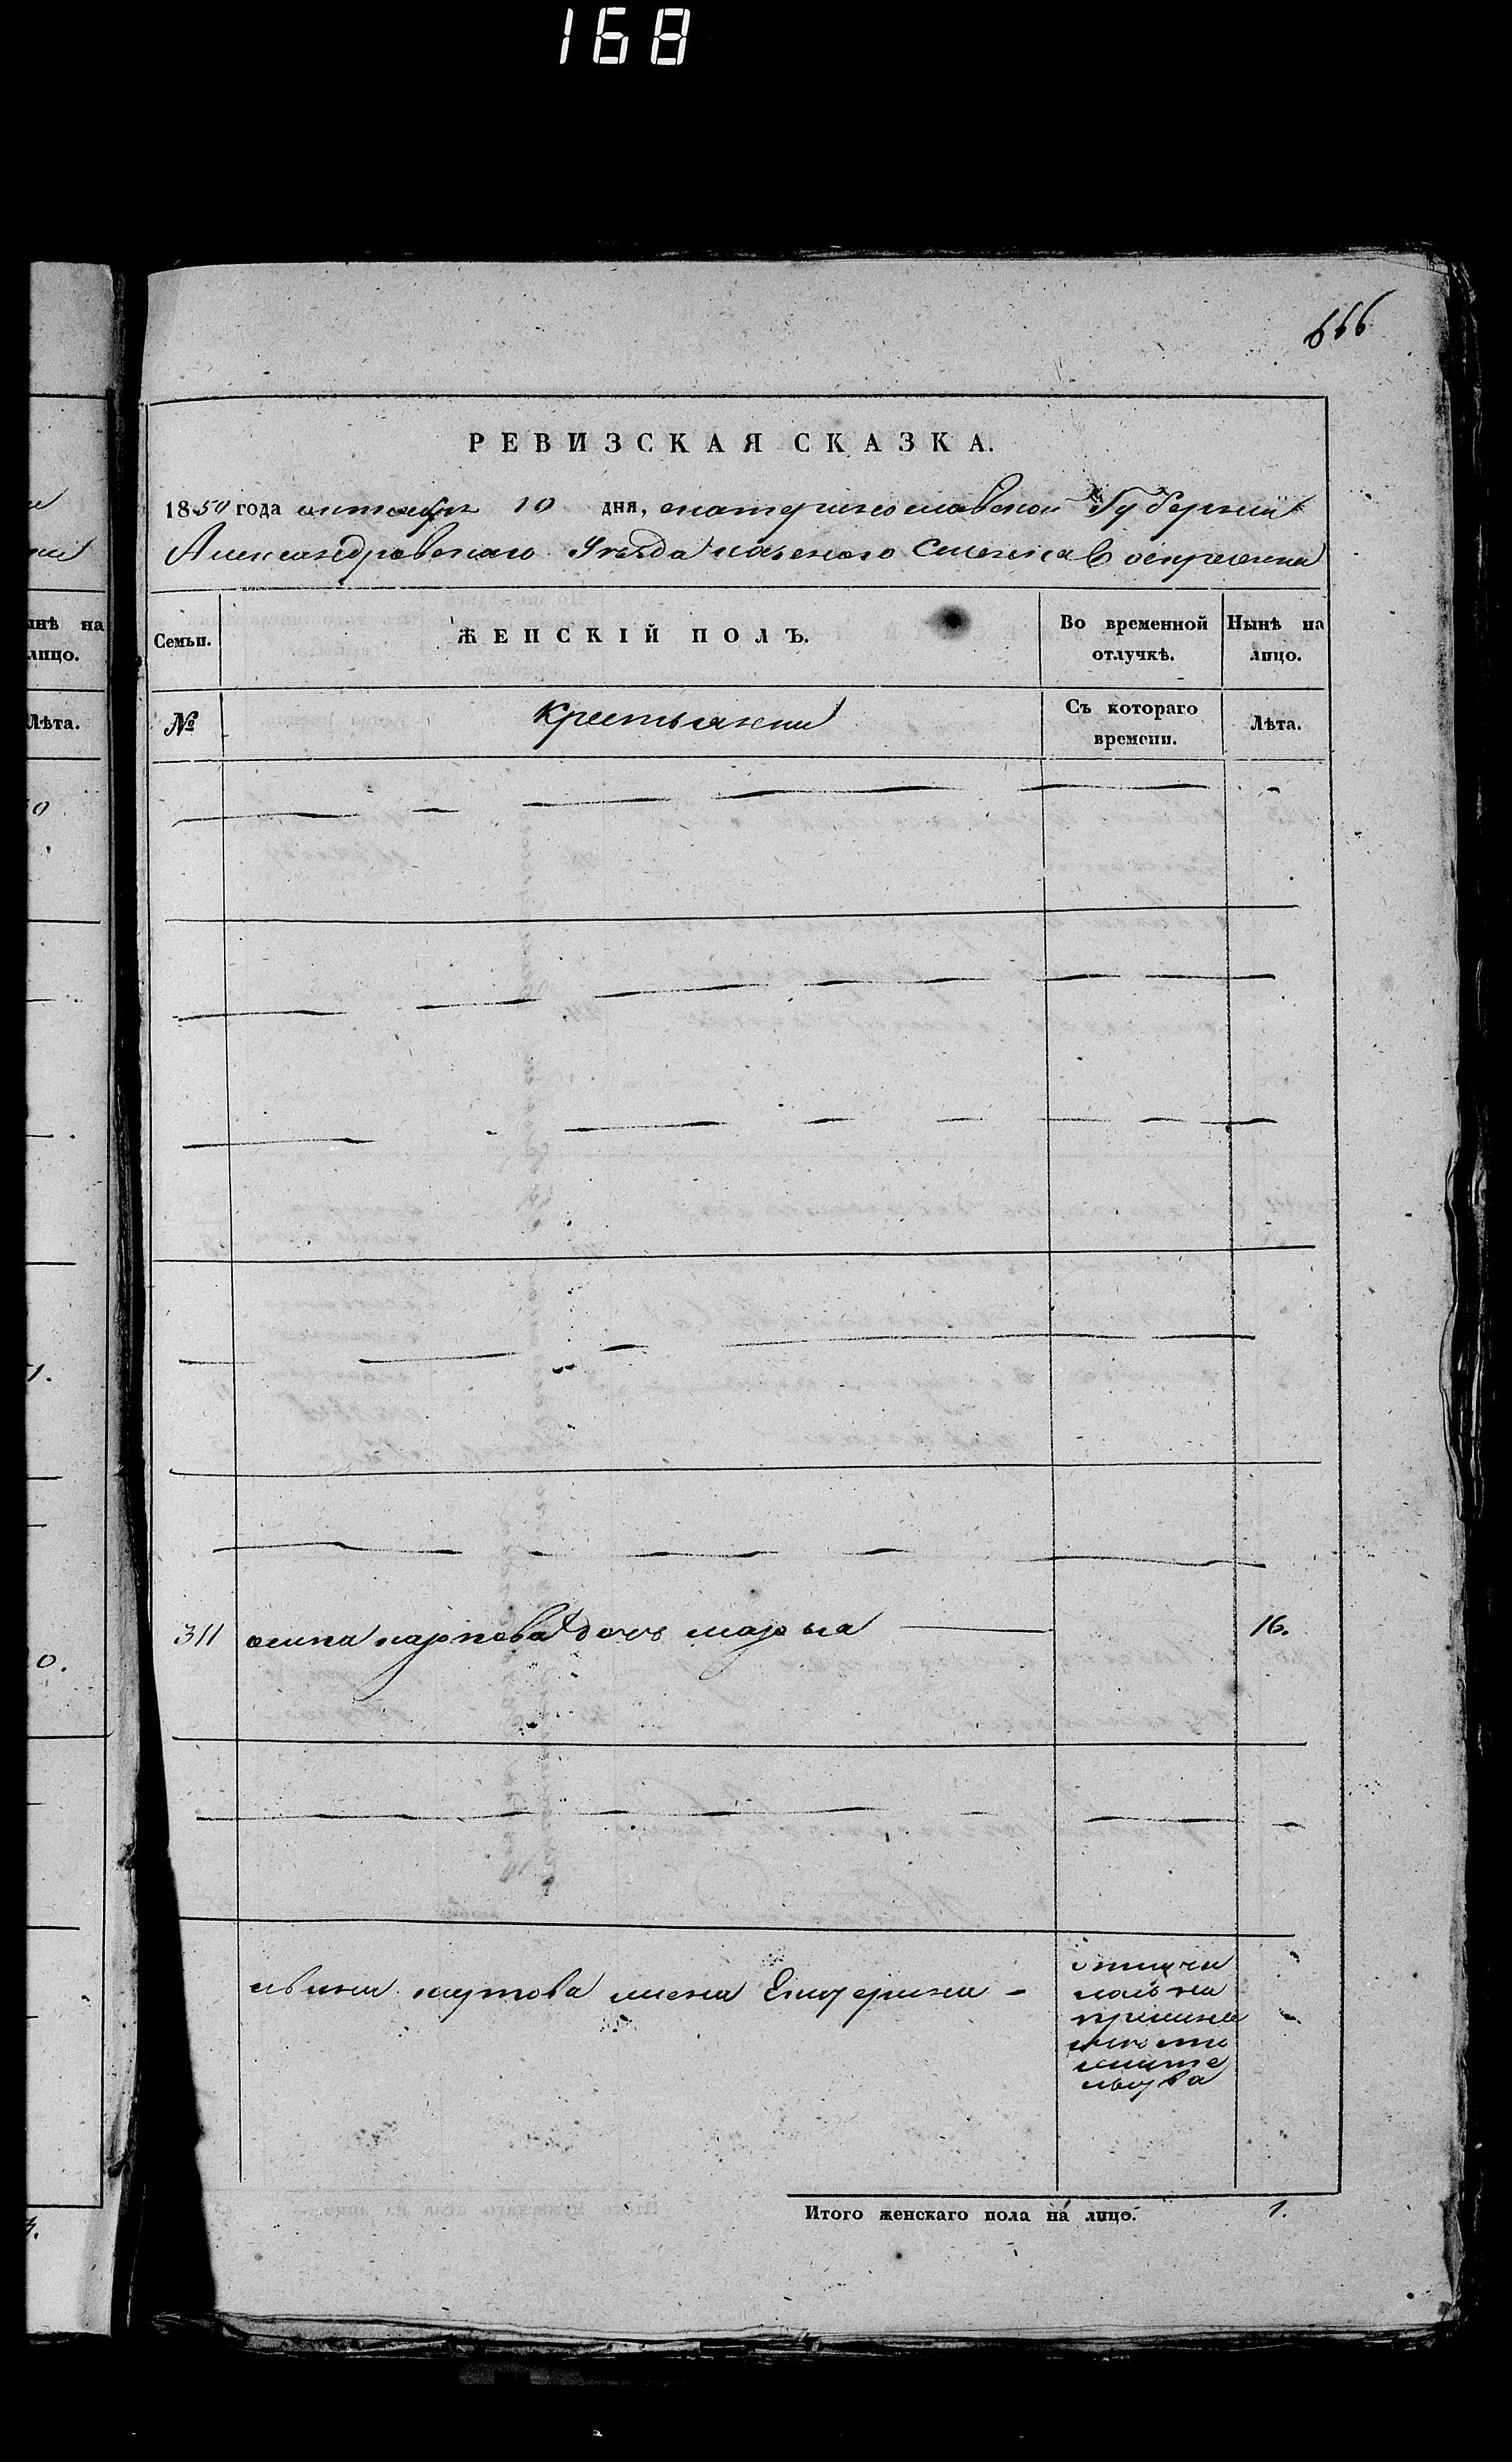 168
666
РЕВИЗСКАЯ СКАЗКА.
1850 года октября 10 дня, екатеринославской Губернии
Александровского Уезда казенного Селения Воскресенки
Семьи.
ЖЕНСКІЙ ПОЛЪ.
Во временной отлучкѣ.
Нынѣ на лицо.
№
крестьяни
Съ котораго времени.
Лѣта.
311 осипа карпова дочь марья 16.
ивана жена Екатерина -
Итого женскаго пола на лицо. 1.
ынѣ на
лицо.
Лѣта.
0
1.
0.